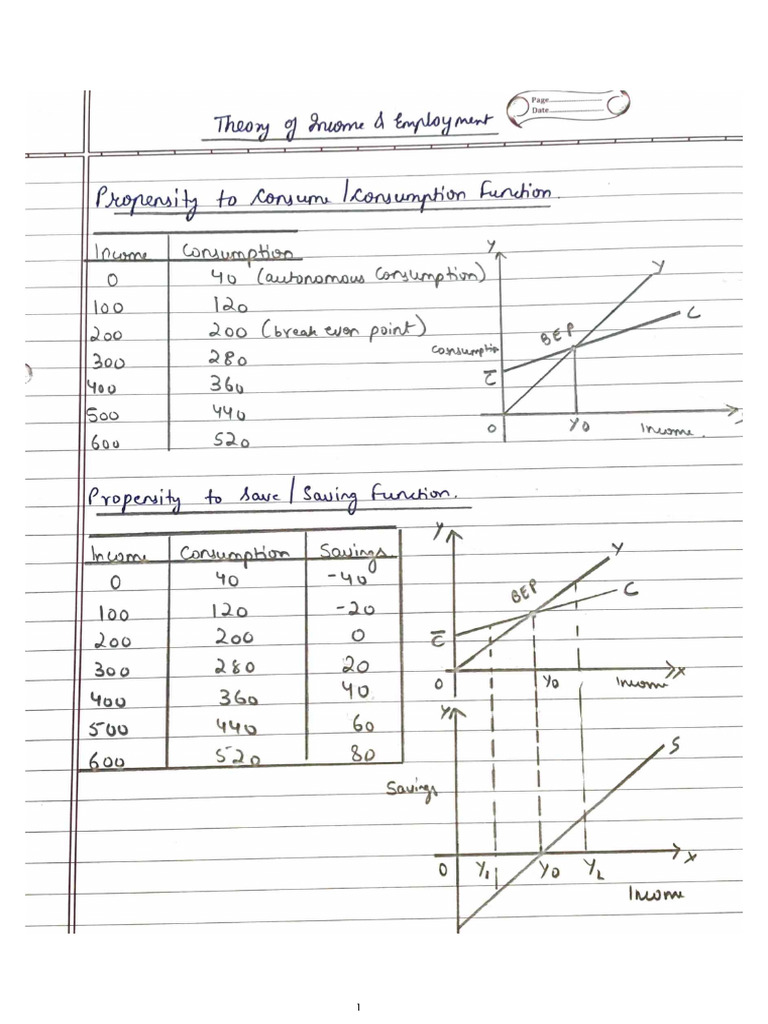 Page
Date
Theory of Income & Employment
Propensity to Consume / Consumption Function.
Income Consumption
0 40 (autonomous Consumption)
100 120
200 200 (break even point)
300 280
400 360
500 440
600 520
Y
Y
C
BEP
Consumption
C̅
O Y0 Income
Propensity to Save / Saving Function.
Income Consumption Savings
0 40 -40
100 120 -20
200 200 0
300 280 20
400 360 40
500 440 60
600 520 80
Y
Y
BEP C
C̅
O Y0 Income X
Y
S
Savings
O Y1 Y0 Y2 X
Income
1